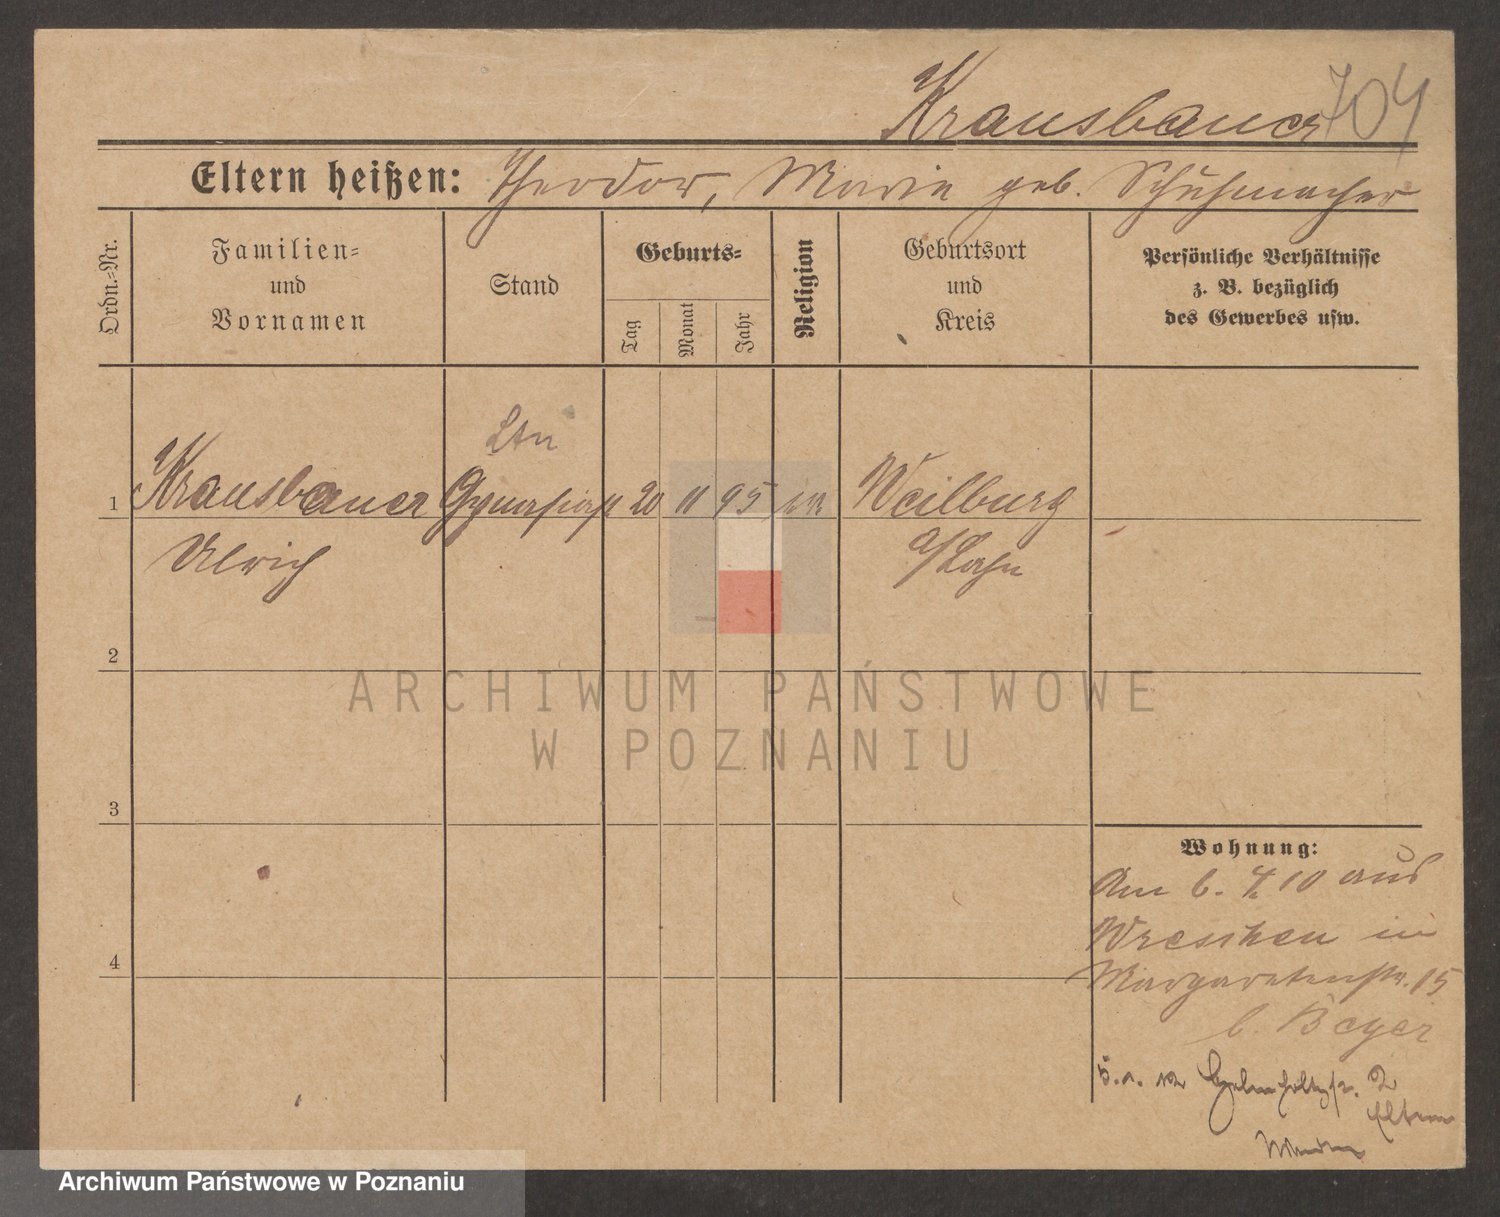 Krausbauer 704
Eltern heißen: Theodor, Marie geb. Schuhmacher
Ordn.-Nr.
Familien-
und
Vornamen
Stand
Geburts-
Tag
Monat
Jahr
Religion
Geburtsort
und
Kreis
Persönliche Verhältnisse
z. B. bezüglich
des Gewerbes usw.
Ltn
1 Krausbauer Gymnasiast 20 11 95 Weilburg
Ulrich
a/Lahn
2
ARCHIWUM PAŃSTWOWE
W POZNANIU
3
Wohnung:
Am 6. 4 10 aus
Wreschen in
Margaretenstr. 15
b. Beyer
5. 1. 12 Helmholtzstr. 2
Eltern
4
Archiwum Państwowe w Poznaniu